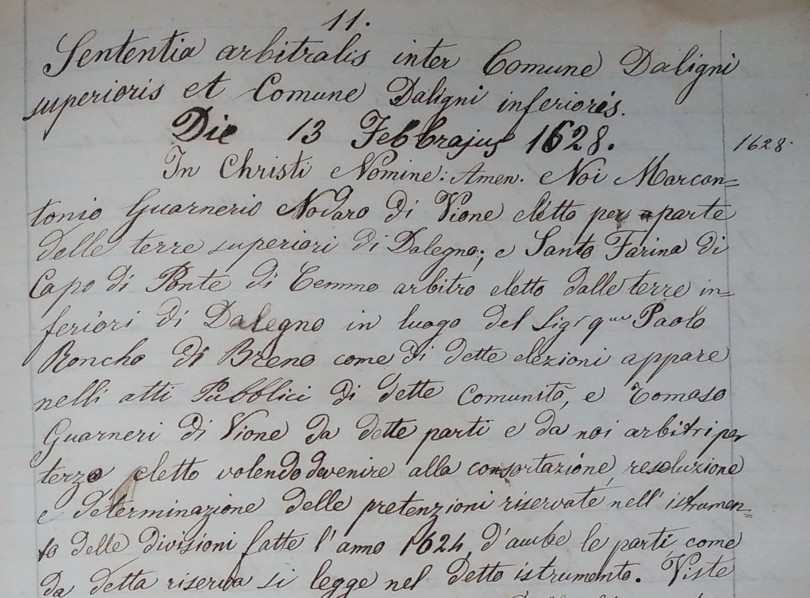 11.
Sententia arbitralis inter Comune Daligni
superioris et Comune Daligni inferioris.
Die 13 Febbrajus 1628.
1628.
In Christi Nomine: Amen. Noi Marcan=
tonio Guarnerio Nodaro di Vione eletto per parte
delle terre superiori di Dalegno; e Santo Farina di
Capo di Ponte di Cemmo arbitro eletto dalle terre in=
feriori di Dalegno in luogo del Sigr qm Paolo
Roncho di Breno come di dette elezioni appare
nelli atti Pubblici di dette Comunità, e Tomaso
Guarneri di Vione da dette parti e da noi arbitri per
terzo eletto volendo devenire alla resoluzione
e determinazione delle pretenzioni riservate nell' istrumen=
to delle divisioni fatte l'anno 1624, d'ambe le parti come
da detta riserva si legge nel detto istrumento. Viste